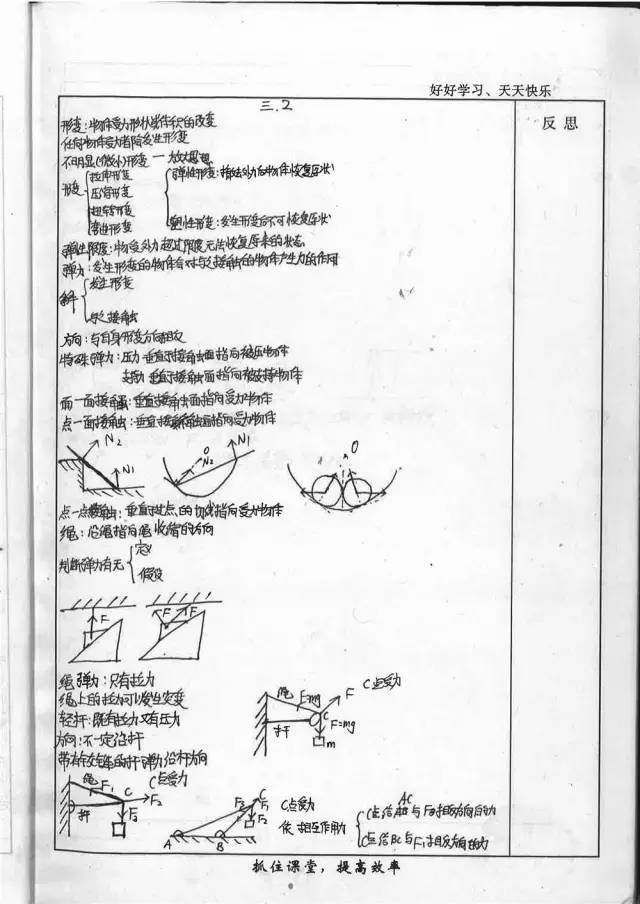 好好学习、天天快乐
三.2
反思
形变:物体受力形状或体积的改变
任何物体受力都能发生形变
不明显(微小)形变一放大思想
形变
拉伸形变
压缩形变
扭转形变
弯曲形变
弹性形变:撤去外力后物体恢复原状
塑性形变:发生形变后不可恢复原状
弹性限度:物受外力超过限度无法恢复原来的状态
弹力:发生形变的物体会对与之接触的物体产生力的作用
条件
发生形变
与之接触
方向:与自身形变方向相反
特殊弹力:压力 垂直于接触面指向被压物体
支持力 垂直于接触面指向被支持物体
面一面接触:垂直接触面指向受力物体
点一面接触:垂直接触面指向受力物体
N2
N1
O
N2
N1
O
点一点接触:垂直于过点的切线指向受力物体
绳:沿绳指向绳收缩的方向
判断弹力有无
定义
假设
F
F
F
绳弹力:只有拉力
绳上的拉力可以发生突变
轻杆:既有拉力又有压力
方向:不一定沿杆
带有铰链的杆弹力沿杆方向
绳
F=mg
F
C点受力
C
杆
F=mg
m
绳
F1
C点受力
C
F2
杆
F3
C
F3
F1
F2
A
B
C点受力
依 相互作用力
C点给AC与F2相反方向的力
C点给BC与F1相反方向的力
抓住课堂,提高效率